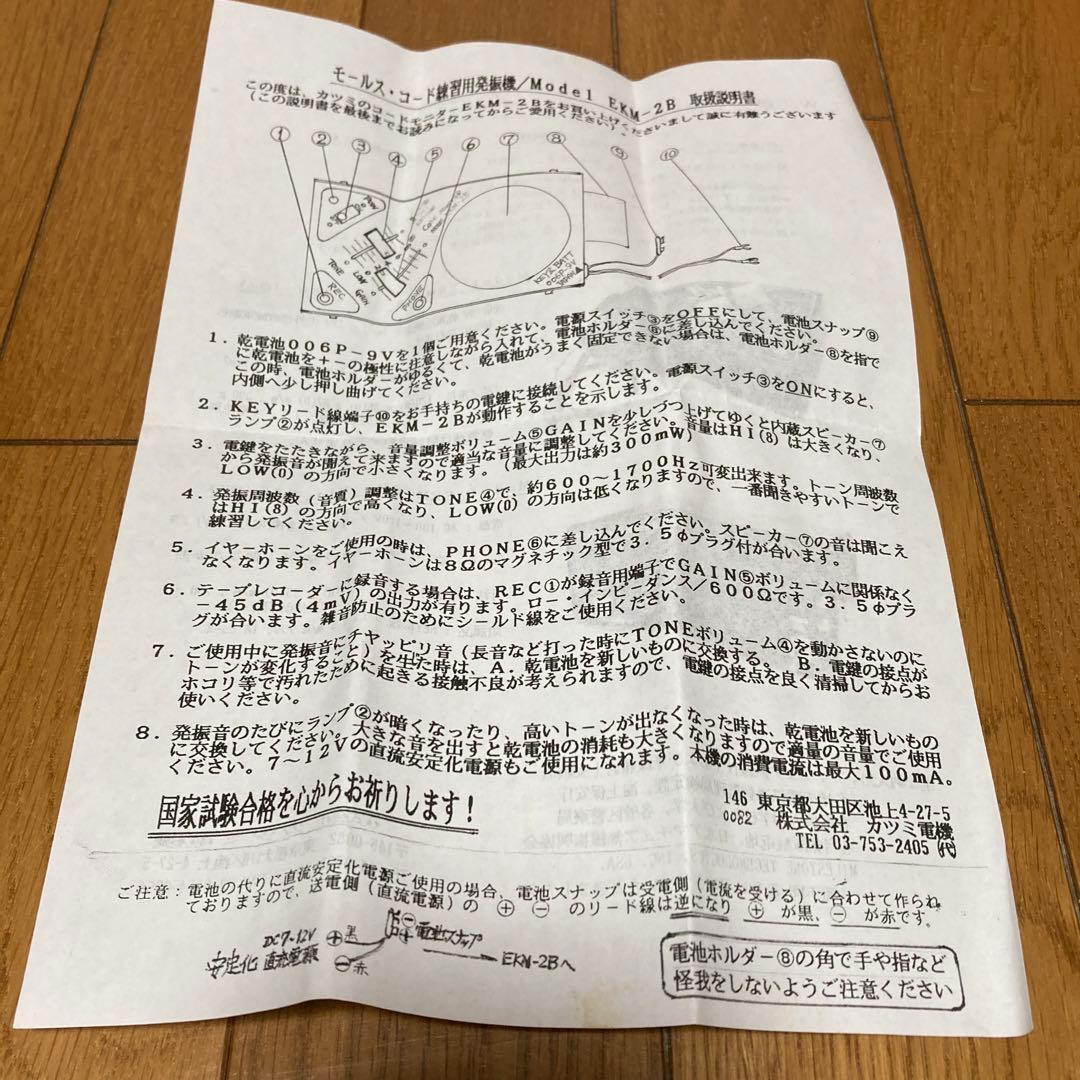 モールス・コード練習用発振機/Model EKM-2B 取扱説明書
この度は、カツミのコードモニターEKM-2Bをお買い上げくださいまして誠に有難うございます
(この説明書を最後までお読みになってからご愛用ください)
① ② ③ ④ ⑤ ⑥ ⑦ ⑧ ⑨ ⑩
TONE
LOW
GAIN
REC
PHONE
KEY & BATT
006P-9V
JAPAN
1．乾電池006P-9Vを1個ご用意ください。電源スイッチ③をOFFにして、電池スナップ⑨
に乾電池を+-の極性に注意しながら入れて、電池ホルダー⑧に差し込んでください。
この時、電池ホルダーがゆるくて、乾電池がうまく固定できない場合は、電池ホルダー⑧を指で
内側へ少し押し曲げてください。
2．KEYリード線端子⑩をお手持ちの電鍵に接続してください。電源スイッチ③をONにすると、
ランプ②が点灯し、EKM-2Bが動作することを示します。
3．電鍵をたたきながら、音量調整ボリューム⑤GAINを少しづつ上げてゆくと内蔵スピーカー⑦
から発振音が聞えて来ますので適当な音量に調整してください。音量はHI(8)は大きくなり、
LOW(0)の方向で小さくなります。(最大出力は約300mW)
4．発振周波数(音質)調整はTONE④で、約600～1700Hz可変出来ます。トーン周波数
はHI(8)の方向で高くなり、LOW(0)の方向は低くなりますので、一番聞きやすいトーンで
練習してください。
5．イヤーホーンをご使用の時は、PHONE⑥に差し込んでください。スピーカー⑦の音は聞こえ
なくなります。イヤーホーンは8Ωのマグネチック型で3.5φプラグ付が合います。
6．テープレコーダーに録音する場合は、REC①が録音用端子でGAIN⑤ボリュームに関係なく
-45dB(4mV)の出力が有ります。ロー・インピーダンス/600Ωです。3.5φプラ
グが合います。雑音防止のためにシールド線をご使用ください。
7．ご使用中に発振音にチャッピリ音(長音など打った時にTONEボリューム④を動かさないのに
トーンが変化すること)を生た時は、A．乾電池を新しいものに交換する。 B．電鍵の接点が
ホコリ等で汚れたために起きる接触不良が考えられますので、電鍵の接点を良く清掃してからお
使いください。
8．発振音のたびにランプ②が暗くなったり、高いトーンが出なくなった時は、乾電池を新しいもの
に交換してください。大きな音を出すと乾電池の消耗も大きくなりますので適量の音量でご使用
ください。7～12Vの直流安定化電源もご使用になれます。本機の消費電流は最大100mA。
国家試験合格を心からお祈りします！
146 東京都大田区池上4-27-5
0082 株式会社 カツミ電機
TEL 03-753-2405 (代)
ご注意：電池の代りに直流安定化電源ご使用の場合、電池スナップは受電側(電流を受ける)に合わせて作られ
ておりますので、送電側(直流電源)の ⊕ ⊖ のリード線は逆になり ⊕ が黒、⊖ が赤です。
DC7-12V
安定化直流電源
⊕黒
⊖赤
⊖
⊕
電池スナップ
EKM-2Bへ
電池ホルダー⑧の角で手や指など
怪我をしないようご注意ください